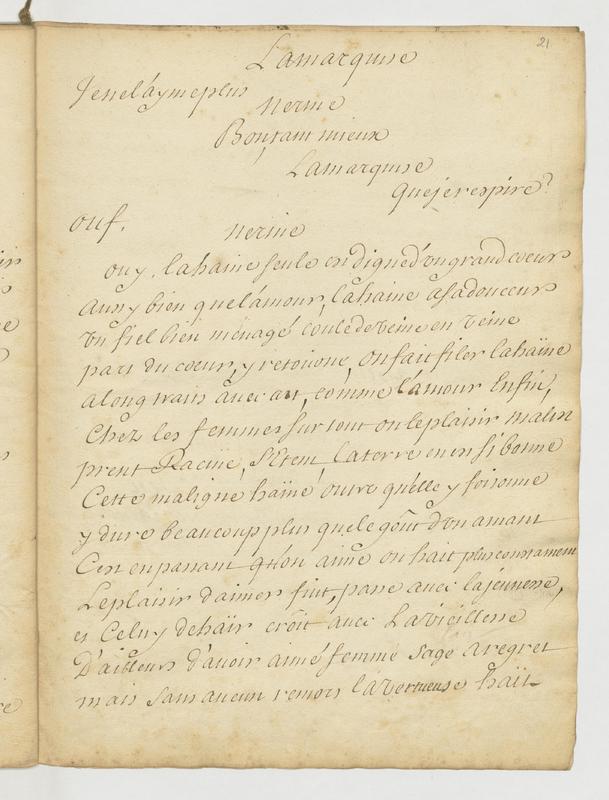 21
Lamarquise
Jenel'aymeplus
nerine
Bon, tant mieux
Lamarquise
quejérespire?
ouf.
nerine
ouy. lahaine seule en digned'vn grand coeur
Aussy bien quel'amour, lahaine asadouceur
vn fiel bien ménagé couledeveine en veine
part du coeur, y retourne, on fait filer lahaine
alongtraits avec art, comme l'amour Enfin,
Chez les femmes sur tout ou leplaisir malin
prent Racine, s'étent, laterre en est si bonne
Cette maligne haine outre qu'elle y foisonne
y dure beaucoup plus quele goût d'vn amant
C'est enpassant qu'on aime on hait plus constament
Leplaisir d'aimer finit, passe avec lajeunesse,
et Celuy dehaïr croît avec Lavieillesse
D'ailleurs d'avoir aimé femme sage aregret
mais sans aucun remors lavertueuse hait